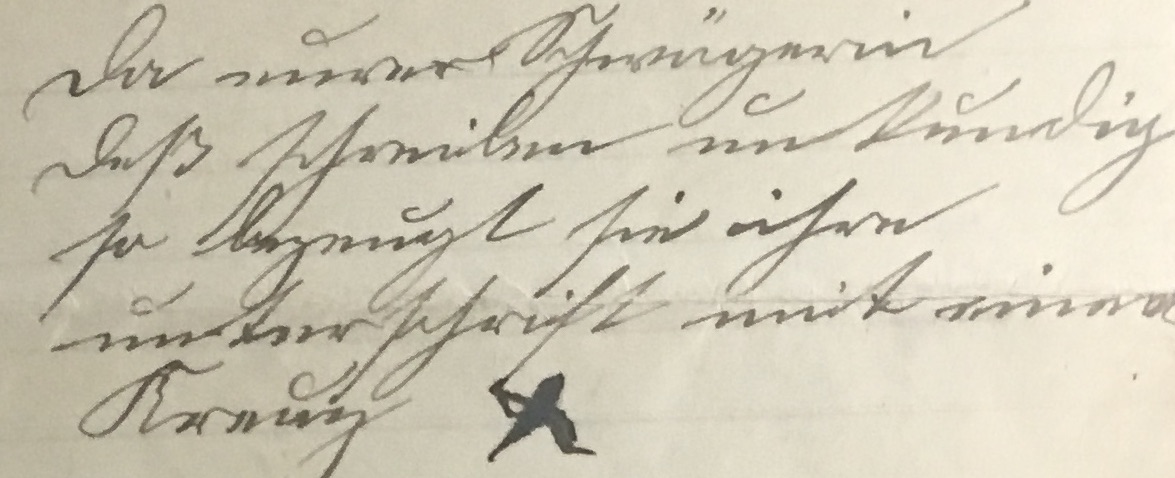 Da eurer Schwägerin
deß schreiben un kundig
so bezeugt sie ihre
unterschrift mit einen
Kreuz